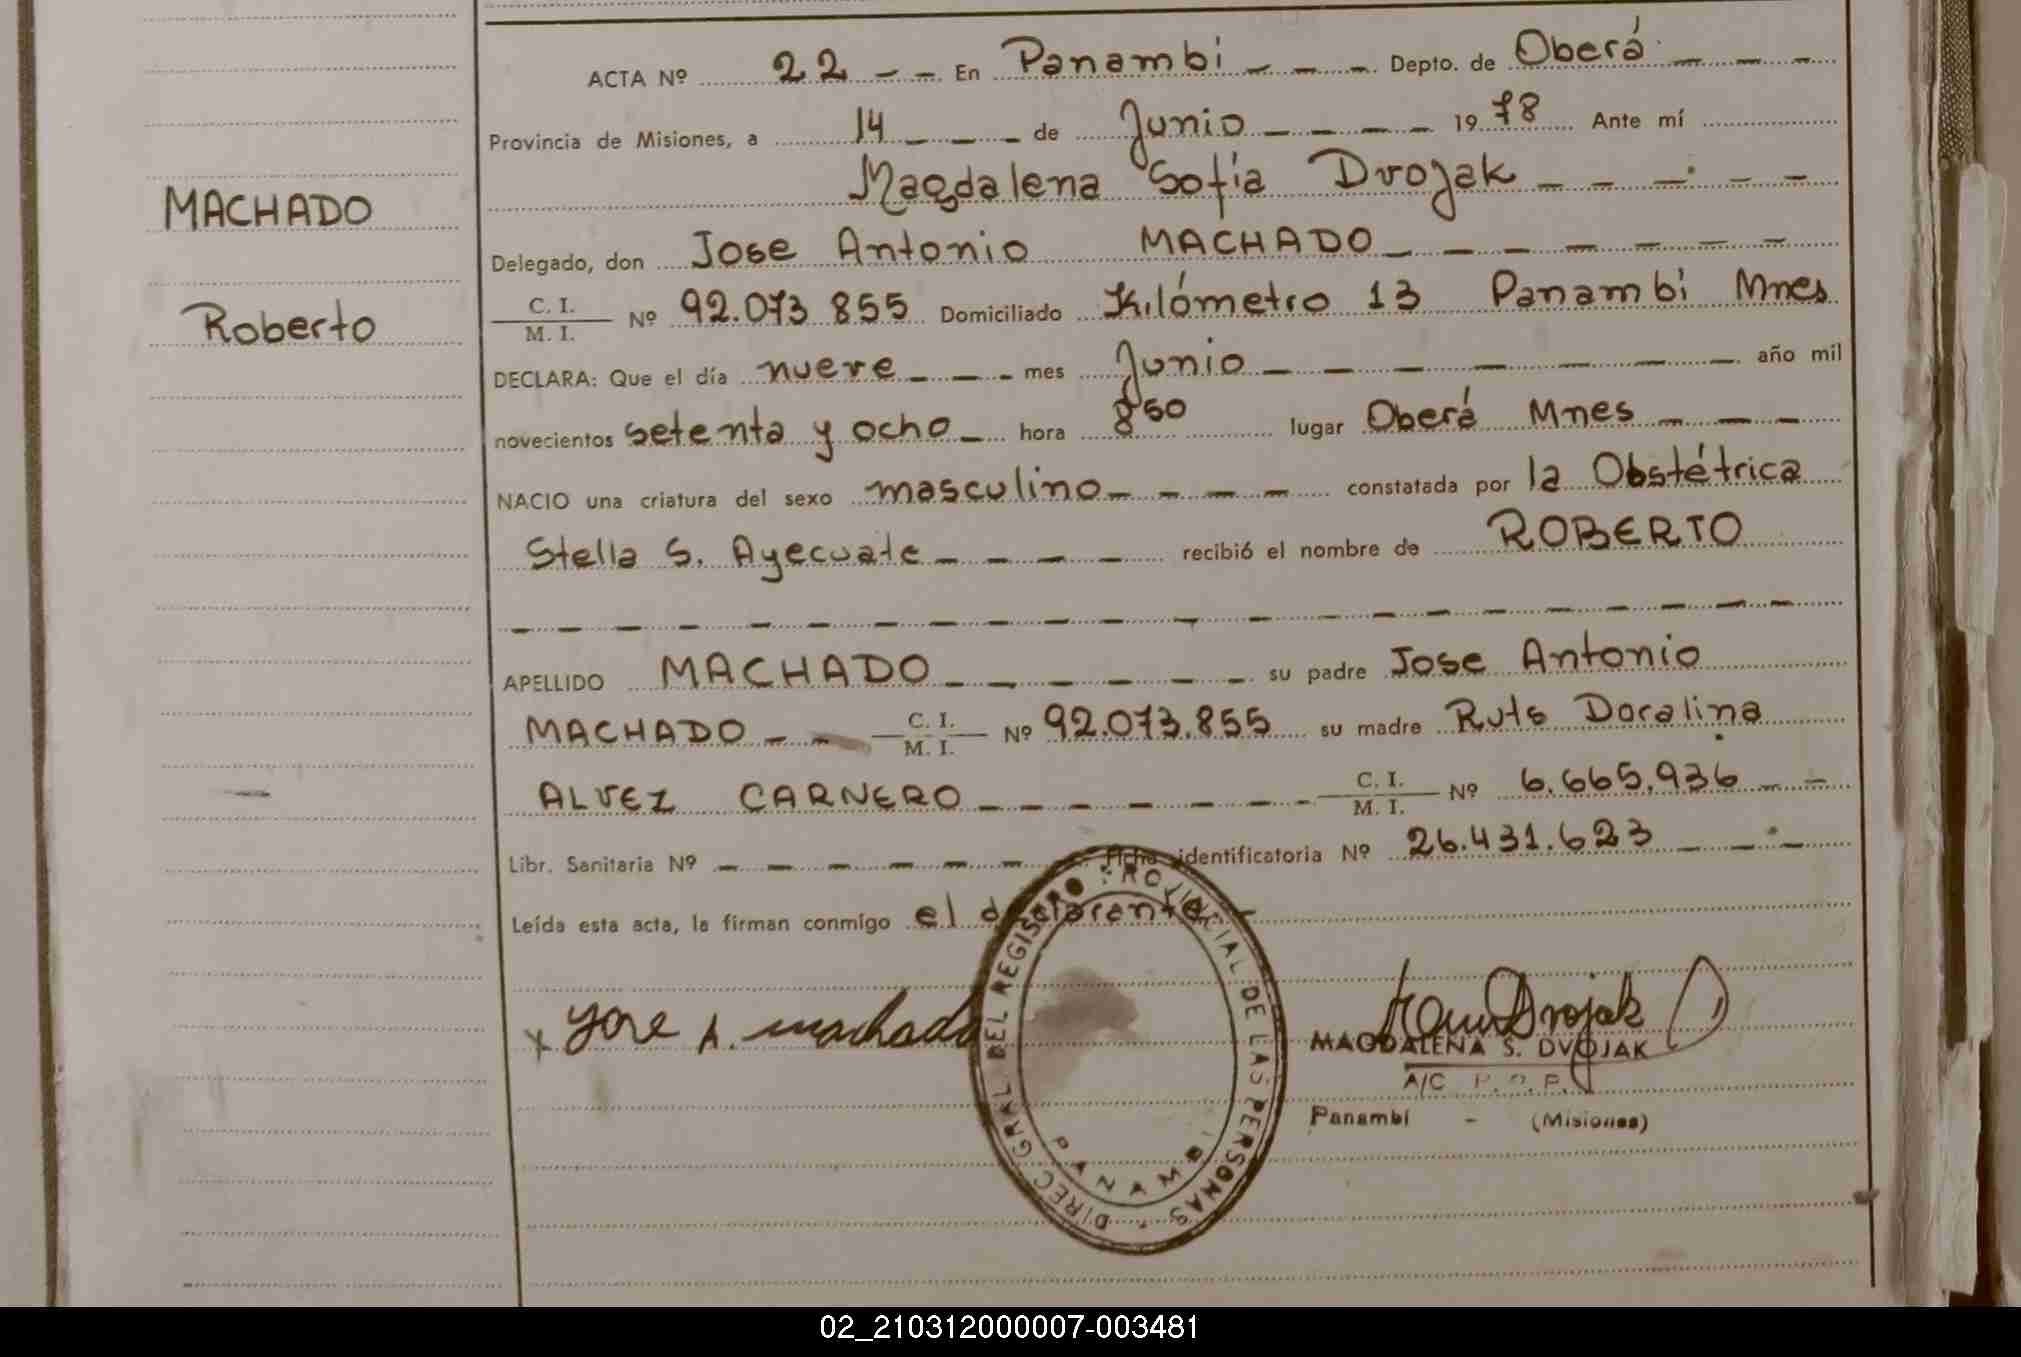 ACTA Nº 22 - - En Panambi - - - Depto. de Oberá - - -
Provincia de Misiones, a 14 - - - de Junio - - - - 19 78 Ante mí
Magdalena Sofia Dvojak - - - - -
MACHADO
Delegado, don Jose Antonio MACHADO - - - - - - -
C. I.
M. I. Nº 92.073 855 Domiciliado Kilómetro 13 Panambi Mnes
Roberto
DECLARA: Que el día nueve - - - mes Junio - - - - - - - año mil
novecientos setenta y ocho - hora 8 50 lugar Oberá Mnes - - -
NACIO una criatura del sexo masculino - - - - constatada por la Obstétrica
Stella S. Ayecuate - - - - recibió el nombre de ROBERTO
APELLIDO MACHADO - - - - - - su padre Jose Antonio
MACHADO - - C. I.
M. I. Nº 92.073.855 su madre Ruts Doralina
ALVEZ CARNERO - - - - - - C. I.
M. I. Nº 6.665.936 - -
Libr. Sanitaria Nº - - - - - - Ficha identificatoria Nº 26.431.623 - - -
Leída esta acta, la firman conmigo el declarante -
x Jose A. machado
Dvojak
MAGDALENA S. DVOJAK
A/C
Panambí - (Misiones)
DIREC GRAL DEL REGISTRO PROVINCIAL DE LAS PERSONAS
PANAMBI
02_210312000007-003481